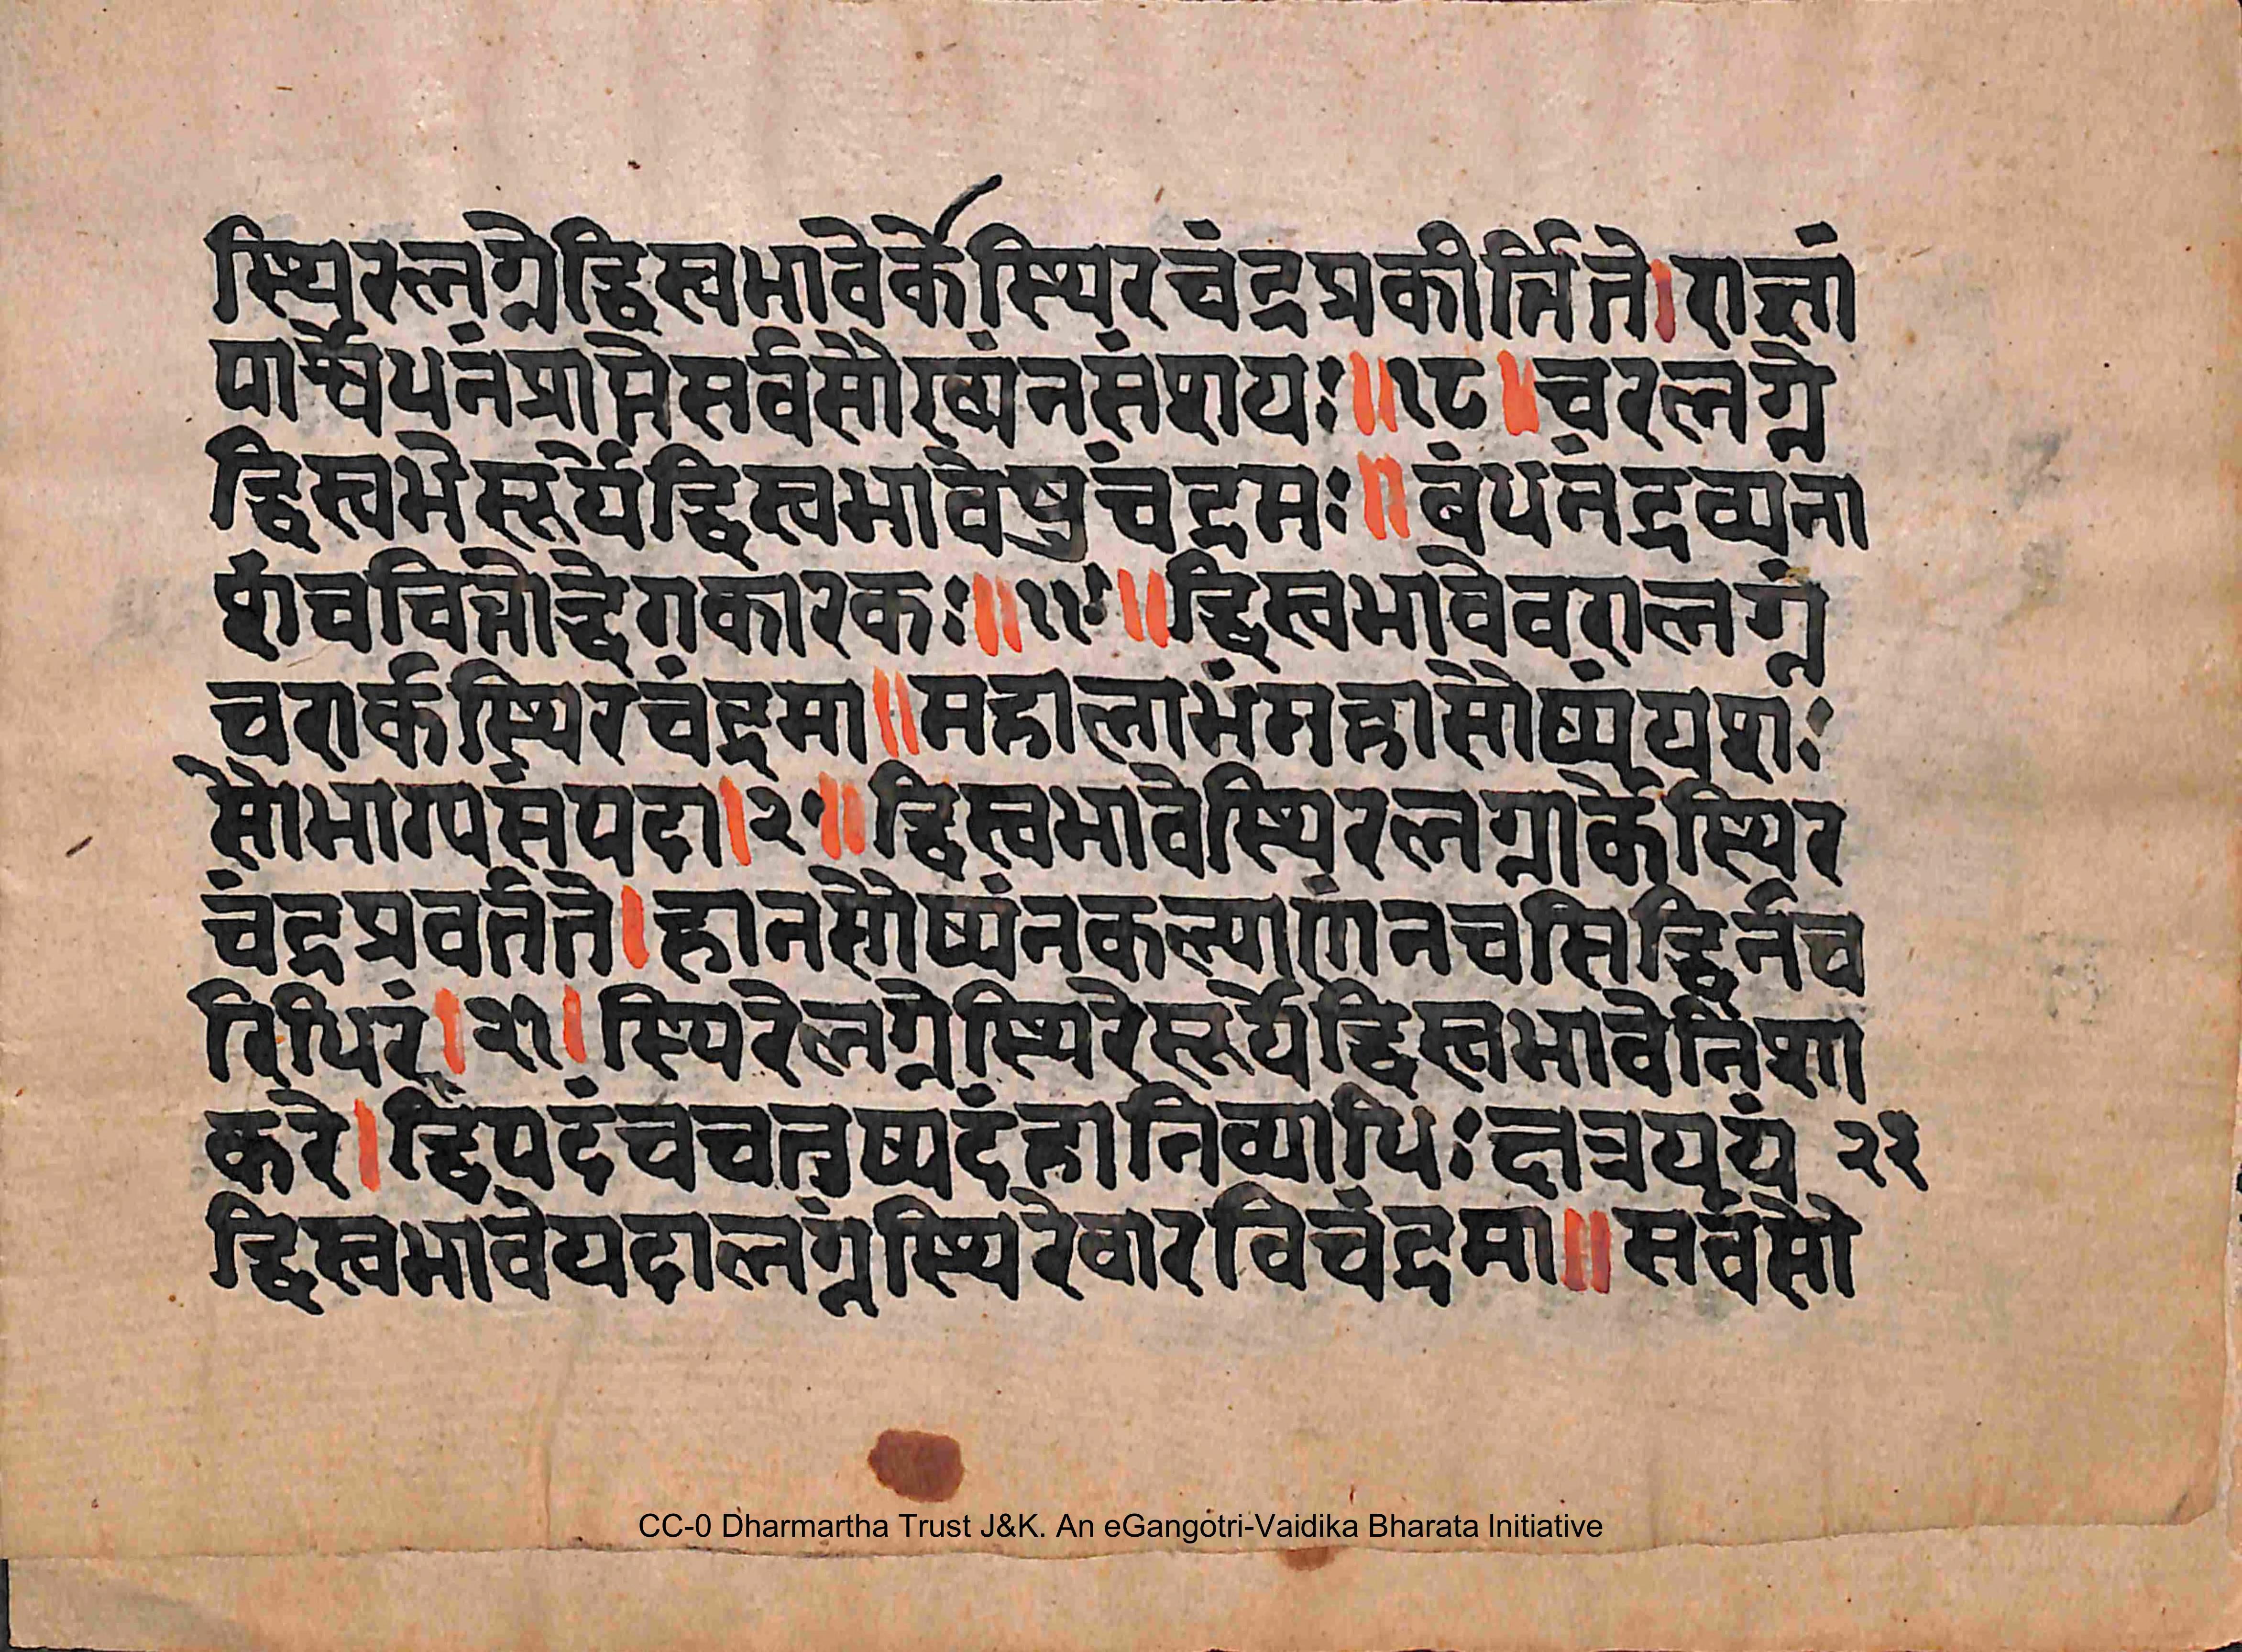 स्थिरलग्नेद्विस्वभावेर्केस्थिरचंद्रप्रकीर्त्तिते।राज्ञां
पार्श्वेधनंप्राप्तेसर्वसौख्यंनसंशयः॥१८॥चरलग्ने
द्विस्वभेसूर्येद्विस्वभावेषुचंद्रमः॥बंधनंद्रव्यना
शंचचित्तोद्वेगकारकः॥१९॥द्विस्वभावेवरालग्नं
चरार्कस्थिरचंद्रमा॥महालाभंमहासौष्यंयशः
सौभाग्यसंपदा।२॰॥द्विस्वभावेस्थिरलग्नार्केस्थिर
चंद्रप्रवर्तते।हानसौष्यंनकल्याणंनचसिद्धिर्नच
रिधिरं।२१।स्थिरेलग्नेस्थिरेसूर्येद्विस्वभावेनिशा
करे।द्विपदंचचतुष्पदंहानिव्याधिः २२
द्विस्वभावेयदालग्नंस्थिरेवारविचंद्रमा॥सर्वसौ
CC-0 Dharmartha Trust J&K. An eGangotri-Vaidika Bharata Initiative